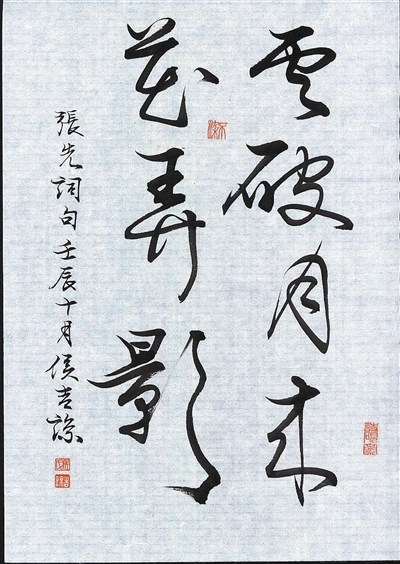 雲破月來
花弄影
張先詞句壬辰十月侯吉諒